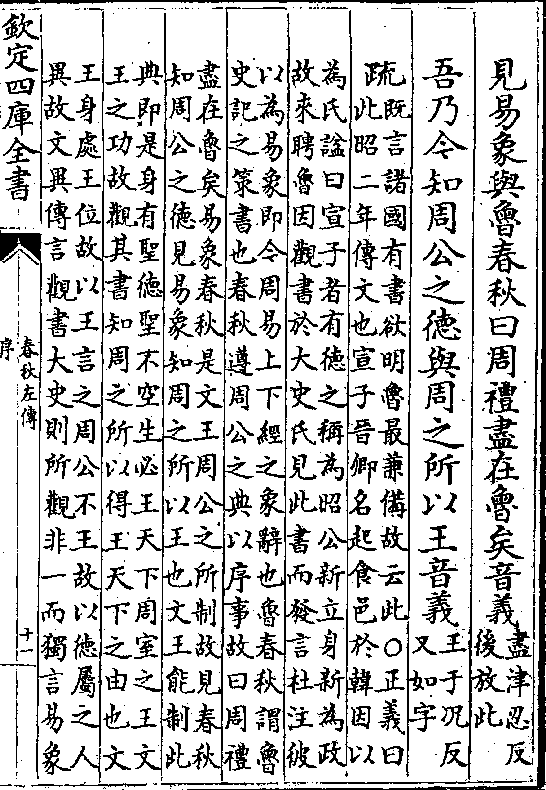 見易象與魯春秋曰周禮盡在魯矣音義盡津忍反
後放此
吾乃今知周公之德與周之所以王音義王于况反
又如字
疏既言諸國有書欲明魯最兼備故云此〇正義曰
此昭二年傳文也宣子晉卿名起食邑於韓因以
為氏諡曰宣子者有德之稱為昭公新立身新為政
故來聘魯因觀書於大史氏見此書而發言杜注彼
以為易象即今周易上下經之象辭也魯春秋謂魯
史記之策書也春秋遵周公之典以序事故曰周禮
盡在魯矣易象春秋是文王周公之所制故見春秋
知周公之德見易象知周之所以王也文王能制此
典即是身有聖德聖不空生必王天下周室之王文
王之功故觀其書知周之所以得王天下之由也文
王身處王位故以王言之周公不王故以德屬之人
異故文異傳言觀書大史則所觀非一而獨言易象
欽定四庫全書
春秋左傳
序
十一